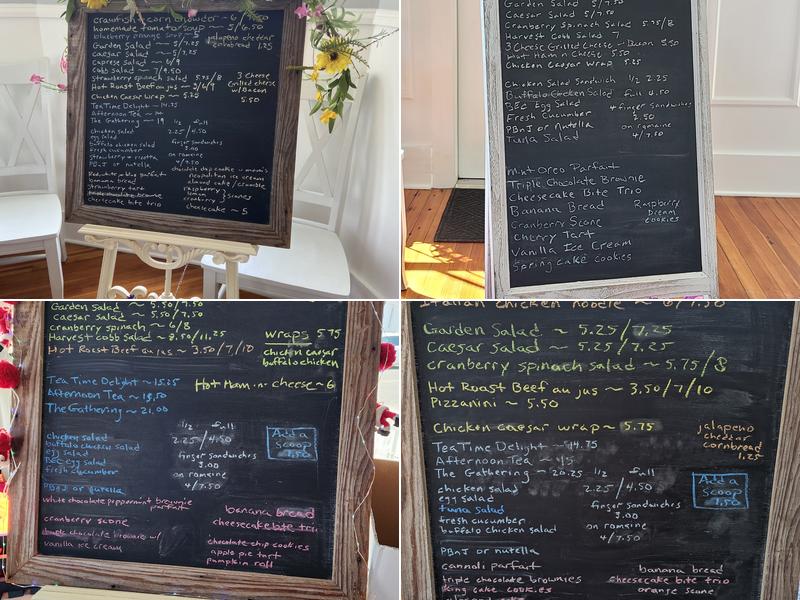 crawfish corn chowder ~ 6/7.50
homemade tomato soup ~ 5/6.50
jalapeno cheddar
cornbread 1.25
Garden Salad ~ 5/7.25
caesar salad ~ 5/7.25
caprese salad ~ 6/9
cobb salad ~ 7/9.50
strawberry spinach salad 5.75/8
Hot Roast Beef au jus ~ 3/6/9
Chicken Caesar Wrap ~ 5.25
3 Cheese
Grilled cheese
w/Bacon
5.50
Tea Time Delight ~ 14.25
Afternoon Tea ~
The Gathering ~ 19
1/2 full
2.25/4.50
chicken salad
egg salad
buffalo chicken salad
fresh cucumber
strawberry + ricotta
PBnJ or nutella
finger sandwiches
3.00
on romaine
4/7.50
banana bread
strawberry tart
cheesecake bite trio
neapolitan ice cream
almond cake/crumble
raspberry
lemon
cranberry
scones
cheesecake ~ 5
Garden Salad 5/7.50
Caesar Salad 5/7.50
Cranberry Spinach Salad 5.75/8
Harvest Cobb Salad 7
3 Cheese Grilled Cheese ~ Bacon 5.50
Hot Ham n Cheese 5.50
Chicken Caesar Wrap 5.25
Chicken Salad Sandwich 1/2 2.25
Buffalo Chicken Salad full 4.50
BBC Egg Salad
Fresh Cucumber
PBnJ or Nutella
Tuna Salad
4 finger sandwiches
2.50
on romaine
4/7.50
Mint Oreo Parfait
Triple Chocolate Brownie
Cheesecake Bite Trio
Banana Bread
Cranberry Scone
Cherry Tart
Vanilla Ice Cream
Spring cake cookies
Raspberry
Dream
cookies
Garden Salad ~ 5.50/7.50
caesar salad ~ 5.50/7.50
cranberry spinach ~ 6/8
Harvest cobb salad ~ 8.50/11.25
Hot Roast Beef au jus ~ 3.50/7/10
wraps 5.75
chicken caesar
buffalo chicken
Tea Time Delight ~ 15.25
Afternoon Tea ~
The Gathering ~ 21.00
Hot Ham n cheese ~ 6
1/2 full
2.25/4.50
chicken salad
buffalo chicken salad
egg salad
BBC egg salad
fresh cucumber
PBnJ or nutella
finger sandwiches
3.00
on romaine
4/7.50
Add a
Scoop
1.50
white chocolate peppermint brownie
parfait
cranberry scone
vanilla ice cream
banana bread
cheesecake bite trio
chocolate chip cookies
apple pie tart
pumpkin roll
Italian chicken noodle ~ 6/7.50
Garden Salad ~ 5.25/7.25
Caesar salad ~ 5.25/7.25
cranberry spinach salad ~ 5.75/8
Hot Roast Beef au jus ~ 3.50/7/10
Pizzanini ~ 5.50
Chicken caesar wrap ~ 5.75
jalapeno
cheddar
cornbread
1.25
Tea Time Delight ~ 14.75
Afternoon Tea ~
The Gathering ~ 20.25
1/2 full
2.25/4.50
chicken salad
egg salad
tuna salad
fresh cucumber
buffalo chicken salad
PBnJ or nutella
finger sandwiches
3.00
on romaine
4/7.50
Add a
Scoop
1.50
cannoli parfait
triple chocolate brownies
king cake cookies
banana bread
cheesecake bite trio
orange scone